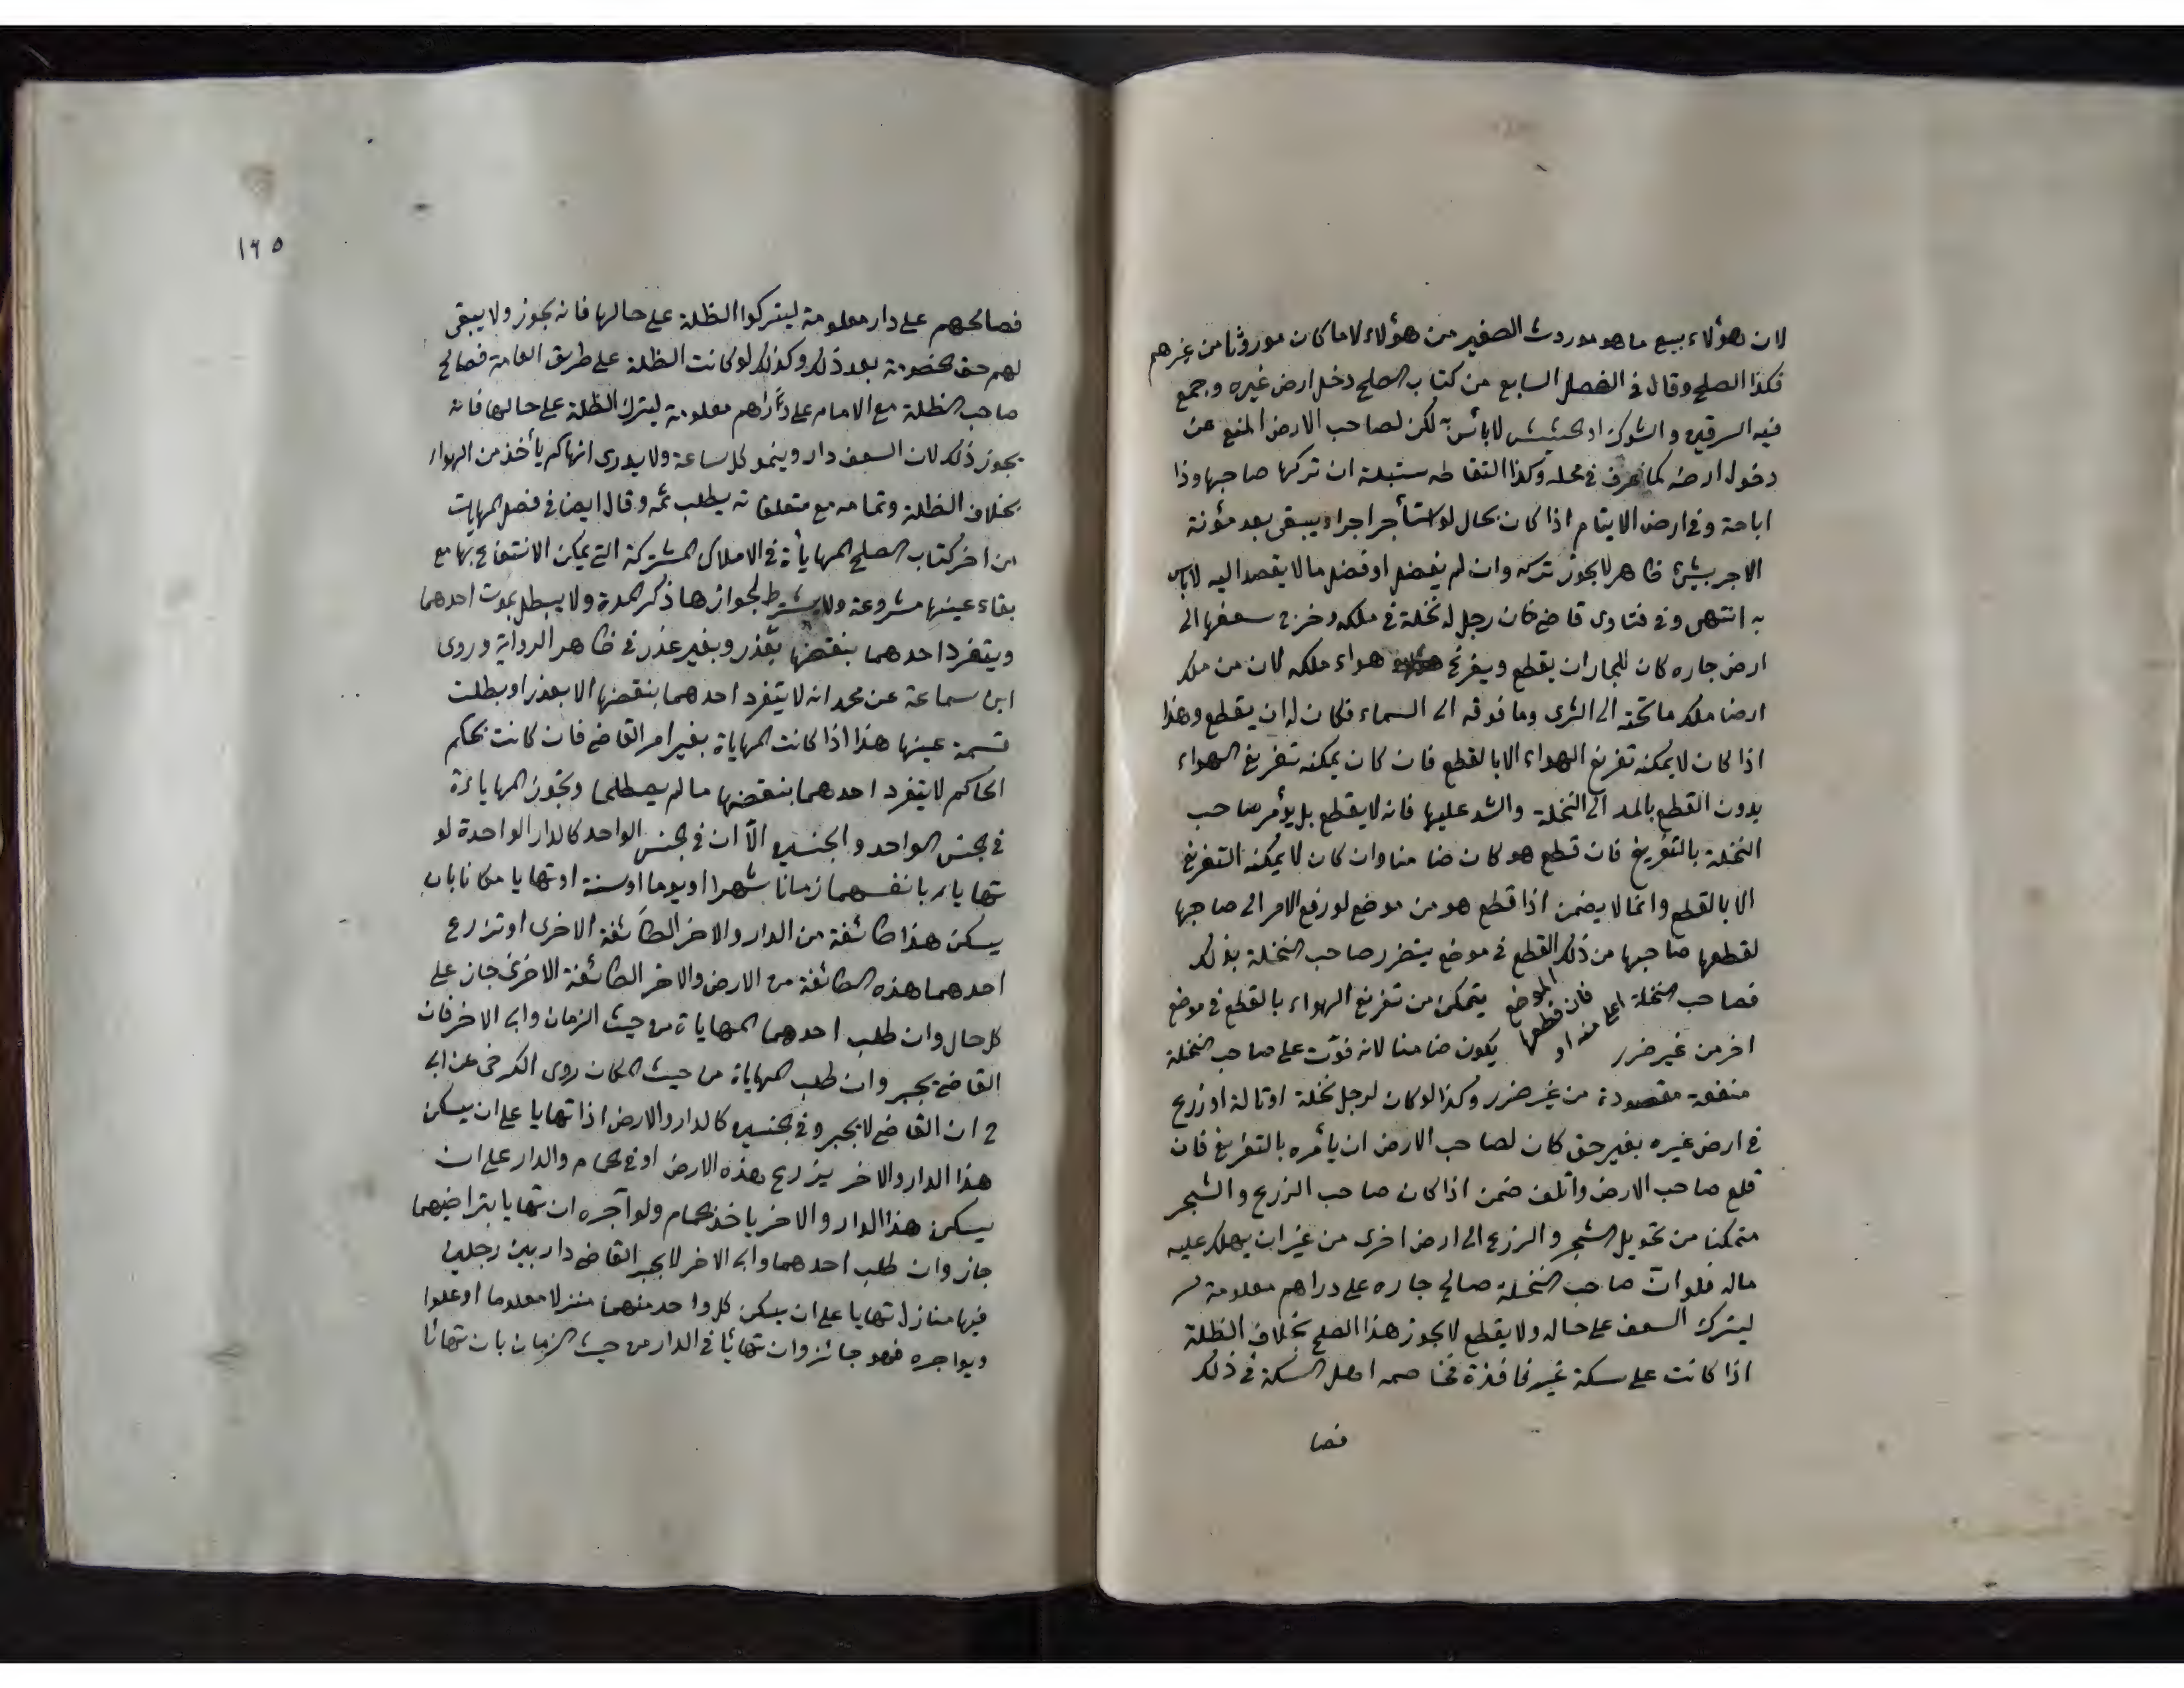 لان هؤلاء بيع ما هو موروث الصغير من هؤلاء لا ما كان موروثا من غيرهم
فكذا الصلح وقال في الفصل السابع من كتاب الصلح دخل ارض غيره وجمع
فيه السرقين والشوك او الحشيش لا بأس به لكن لصاحب الارض المنع عن
دخول ارضه كما عرف في محله وكذا التقاطه سنبلة ان تركها صاحبها وذا
اباحة وفي ارض الايتام اذا كان بحال لو استأجر اجراء يبقى بعد مؤنة
الاجر شئ ظاهر لا يجوز تركه وان لم يفضل او فضل ما لا يقصد اليه لا بأس
به انتهى وفي فتاوى قاضيخان رجل له نخلة في ملكه وخرج سعفها الى
ارض جاره كان للجار ان يقطع ويفرغ هواء ملكه لان من ملك
ارضا ملك ما تحته الى الثرى وما فوقه الى السماء فكان له ان يقطع وهذا
اذا كان لا يمكنه تفريغ الهواء الا بالقطع فان كان يمكنه تفريغ الهواء
بدون القطع بالمد الى النخلة والشد عليها فانه لا يقطع بل يؤمر صاحب
النخلة بالتفريغ فان قطع هو كان ضامنا وان كان لا يمكنه التفريغ
الا بالقطع وانما لا يضمن اذا قطع هو من موضع لو رفع الامر الى صاحبها
لقطعها صاحبها من ذلك القطع في موضع يتضرر صاحب النخلة بذلك
فصاحب النخلة يتمكن من تفريغ الهواء بالقطع في موضع
اخر من غير ضرر يكون ضامنا لانه فوّت على صاحب النخلة
فان قطعها اعلى منه او الموضع
منفعة مقصودة من غير ضرر وكذا لو كان لرجل نخلة او تالة او زرع
في ارض غيره بغير حق كان لصاحب الارض ان يأمره بالتفريغ فان
قلع صاحب الارض واتلف ضمن اذا كان صاحب الزرع والشجر
متمكنا من تحويل الشجر والزرع الى ارض اخرى من غير ان يهلك عليه
ماله فلو انّ صاحب النخلة صالح جاره على دراهم معلومة
ليترك السعف على حاله ولا يقطع لا يجوز هذا الصلح بخلاف الظلة
اذا كانت على سكة غير نافذة فخاصمه اهل السكة في ذلك
فصا
١٦٥
فصالحهم على دار معلومة ليتركوا الظلة على حالها فانه يجوز ولا يبقى
لهم حق الخصومة بعد ذلك وكذلك لو كانت الظلة على طريق العامة فصالح
صاحب الظلة مع الامام على دراهم معلومة ليترك الظلة على حالها فانه
يجوز ذلك لان السعف دار وينمو كل ساعة ولا يدرى انها كم يأخذ من الهواء
بخلاف الظلة وتمامه مع متعلقاته يطلب ثمه وقال ايضا في فصل المهايات
من اخر كتاب الصلح المهايأة في الاملاك المشتركة التي يمكن الانتفاع بها مع
بقاء عينها مشروعة ولا يشترط لجوازها ذكر المدة ولا يبطل بموت احدهما
ويتفرد احدهما بنقضها بعذر وبغير عذر في ظاهر الرواية وروى
ابن سماعة عن محمد انه لا يتفرد احدهما بنقضها الا بعذر او بطلت
قسمة عينها هذا اذا كانت المهاياة بغير امر القاضي فان كانت بحكم
الحاكم لا يتفرد احدهما بنقضها ما لم يصطلحا وتجوز المهاياءة
في الجنس الواحد والجنسين الّا ان في الجنس الواحد كالدار الواحدة لو
تهاياء بانفسهما زمانا شهرا او يوما او سنة او تهايا مكانا بان
يسكن هذا طائفة من الدار والاخر الطائفة الاخرى او تزرع
احدهما هذه الطائفة من الارض والاخر الطائفة الاخرى جاز على
كل حال وان طلب احدهما المهاياة من حيث الزمان وابى الاخر فان
القاضي يجبر وان طلب المهاياة من حيث المكان روى الكرخي عن ابي
ح ان القاضي لا يجبر وفي الجنسين كالدار والارض اذا تهايا على ان يسكن
هذا الدار والاخر يزرع هذه الارض او في الحمام والدار على ان
يسكن هذا الدار والاخر ياخذ الحمام ولو آجره ان تهايا بتراضيهما
جاز وان طلب احدهما وابى الاخر لا يجبر القاضي دار بين رجلين
فيها منازل تهايا على ان يسكن كل واحد منهما منزلا معلوما او علوا
ويواجره فهو جائز وان تهائيا في الدار من حيث الزمان بان تهائا